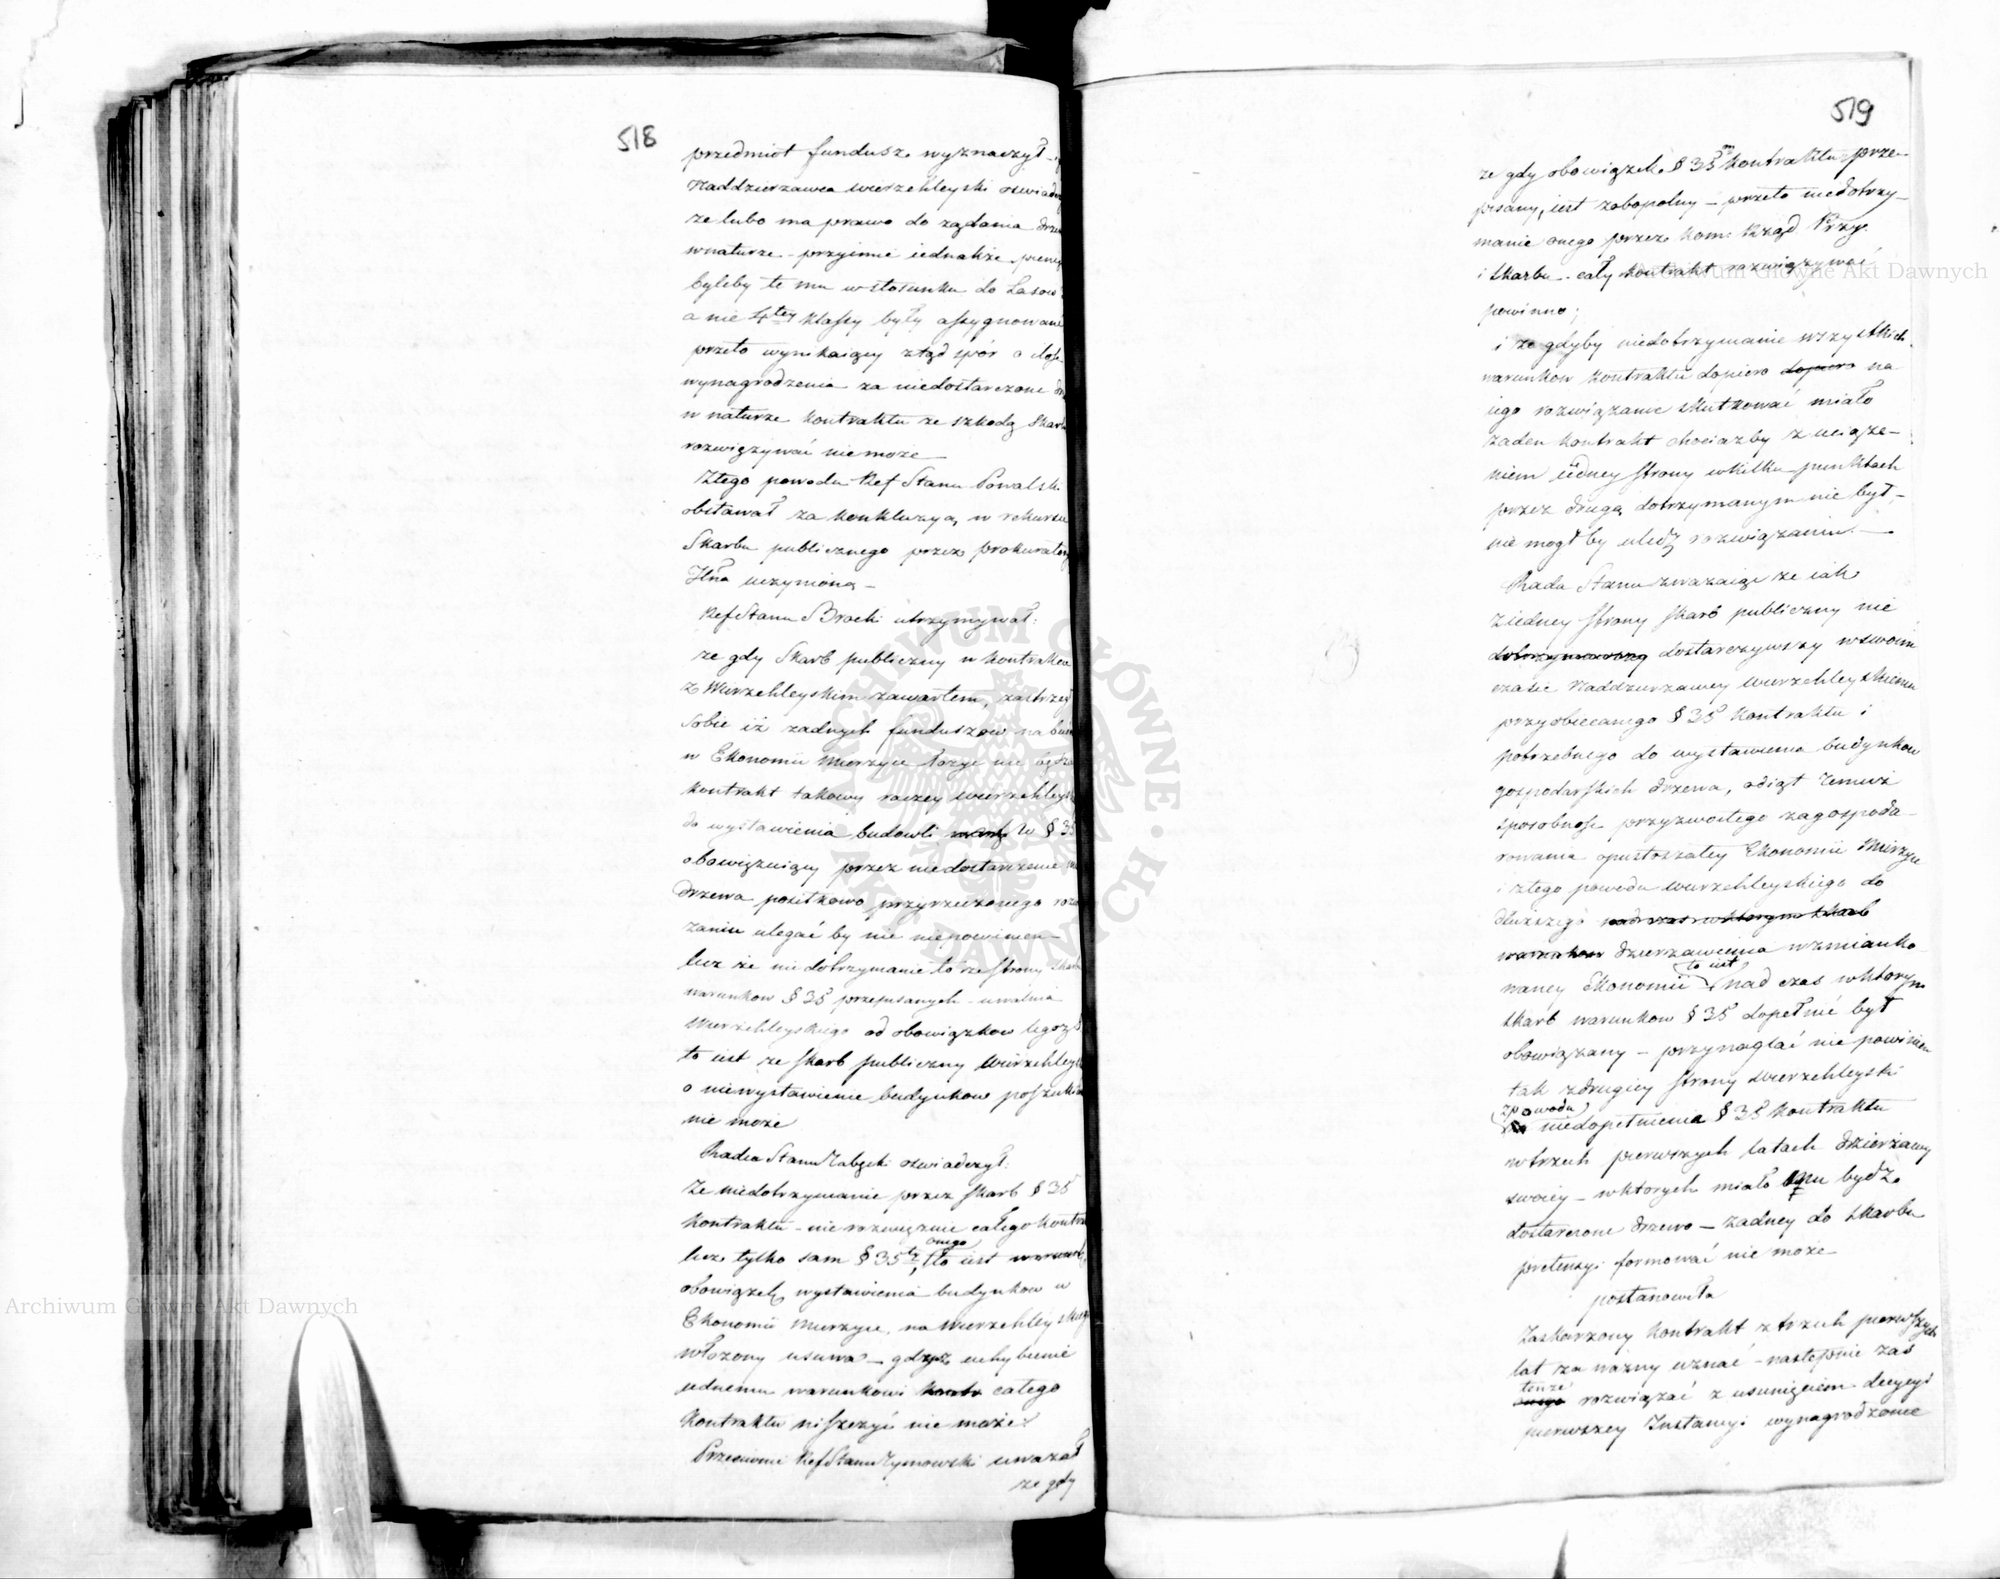 518
przedmiot fundusz wyznaczył –
Naddzierzawca Wierzchleyski oswiad
ze lubo ma prawo do ządania drze
w naturze – przyimie iednakże pien
byleby te mu w stosunku do Lasow
a nie 4tey klassy były assygnowane
przeto wynikaiący ztąd spór o ilość
wynagrodzenia za niedostarczone
w naturze kontraktu ze szkodą Skarb
rozwięzywać nie może
Ztego powodu Ref Stanu Powalski
obstawał za konkluzyą, w rekursie
Skarbu publicznego przez prokurator
uczynioną –
Ref Stanu Brocki utrzymywał:
ze gdy Skarb publiczny w kontrakcie
z Wierzchleyskim zawartem, zastrzeg
sobie iż zadnych funduszow na bu
w Ekonomii Mierzyce łozyć nie będz
kontrakt takowy raczey Wierzchleys
do wystawienia budowli w § 35
obowiązuiący przez niedostarczenie
drzewa posiłkowo przyrzeczonego roz
zaniu ulegać by nie niepowinien –
lecz że niedotrzymanie to ze strony Skarb
warunkow § 35 przepisanych – uwalnia
Wierzchleyskiego od obowiązkow tegoz §
to iest ze Skarb publiczny Wierzchleys
o niewystawienie budynkow poszukiw
nie może
Radca Stanu Zabęcki oswiadczył:
Ze niedotrzymanie przez Skarb § 35
kontraktu – nie rozwięzuie całego kontra
lecz tylko sam § 35ty onego to iest warunek
obowiązek wystawienia budynkow w
Ekonomii Mierzyce, na Wierzchleyskieg
włożony usuwa – gdyż uchybienie
iednemu warunkowi całego
kontraktu niszczyć nie może
Przeciwnie Ref Stanu Tymowski uwazał
ze gdy
519
ze gdy obowiązek § 35m kontraktu prze-
pisany, iest zobopolny – przeto niedotrzy-
manie onego przez Kom: Rząd Przy:
i Skarbu cały kontrakt rozwięzywać
powinno;
i ze gdyby niedotrzymanie wszystkich
warunkow kontraktu dopiero dopiero na
iego rozwiązanie skutkować miało
zaden kontrakt chociazby z uciąze-
niem iedney strony w kilku punktach
przez drugą dotrzymanym nie był –
nie mogł by uledz rozwiązaniu –
Rada Stanu zwazaiąc ze iak
Ziedney strony Skarb publiczny nie
dostarczywszy w swoim
czasie Naddzierzawcy Wierzchleyskiemu
przyobiecanego § 35 kontraktu i
potrzebnego do wystawienia budynkow
gospodarskich drzewa, odiął temuż
sposobność przyzwoitego zagospoda-
rowania opustoszałey Ekonomii Mierzyce
i ztego powodu Wierzchleyskiego do
dłuższego nad czas w ktorym Skarb
warunkow dzierzawienia wzmianko-
waney Ekonomii to iest nad czas w ktorym
Skarb warunkow § 35 dopełnić był
obowiązany – przynaglać nie powinien
tak zdrugiey strony Wierzchleyski
z powodu
niedopełnienia § 35 kontraktu
w trzech pierwszych latach dzierżawy
swoiey – w ktorych miało mu bydź
dostarczone drzewo – żadney do Skarbu
pretensyi formować nie może –
postanowiła
Zaskarzony kontrakt z trzech pierwszych
lat za ważny uznać – następnie zaś
tenże
onego rozwiązać z usunięciem decyzyi
pierwszey Instancyi wynagrodzenie
Archiwum Główne Akt Dawnych
Archiwum Główne Akt Dawnych
ARCHIWUM GŁÓWNE AKT DAWNYCH